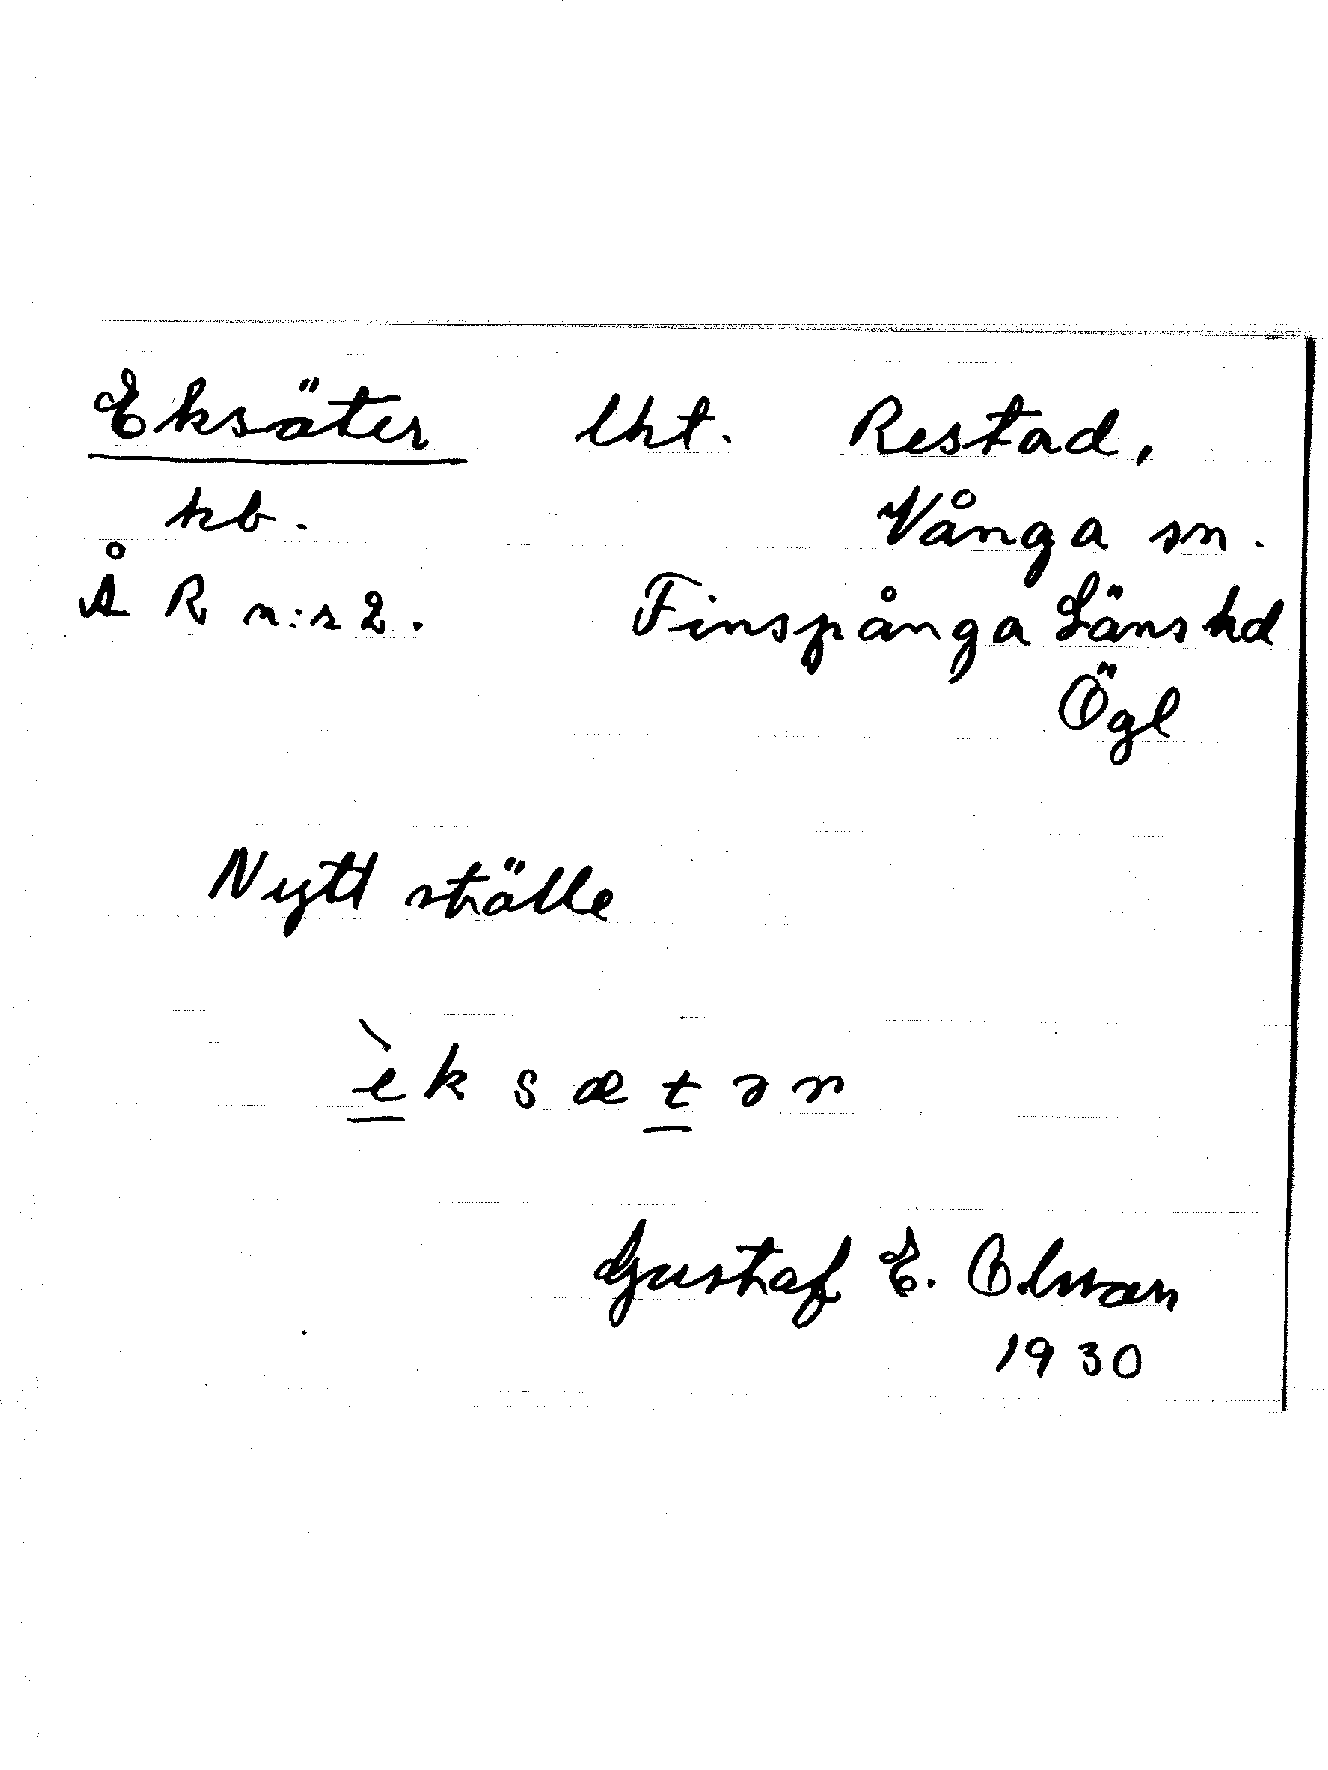 Eksäter lht. Restad,
hb. Vånga sn.
Å R n:r 2. Finspånga Läns hd
Ögl
Nytt ställe
èksætər
Gustaf E. Olsson
1930